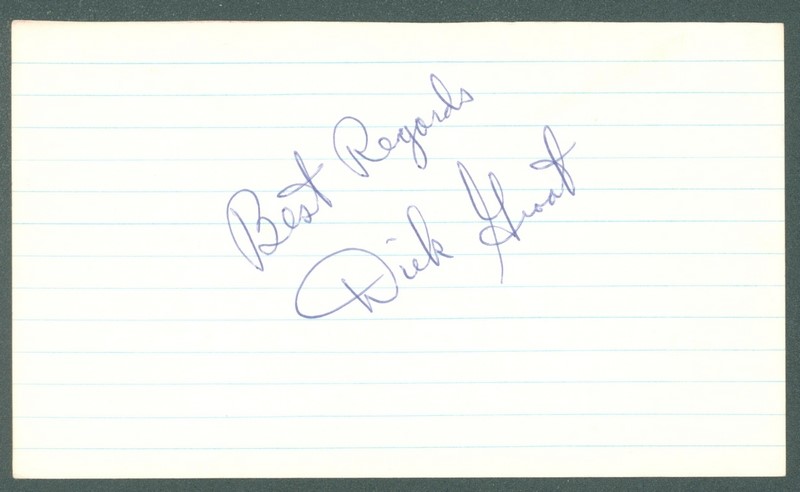 Best Regards
Dick Groat